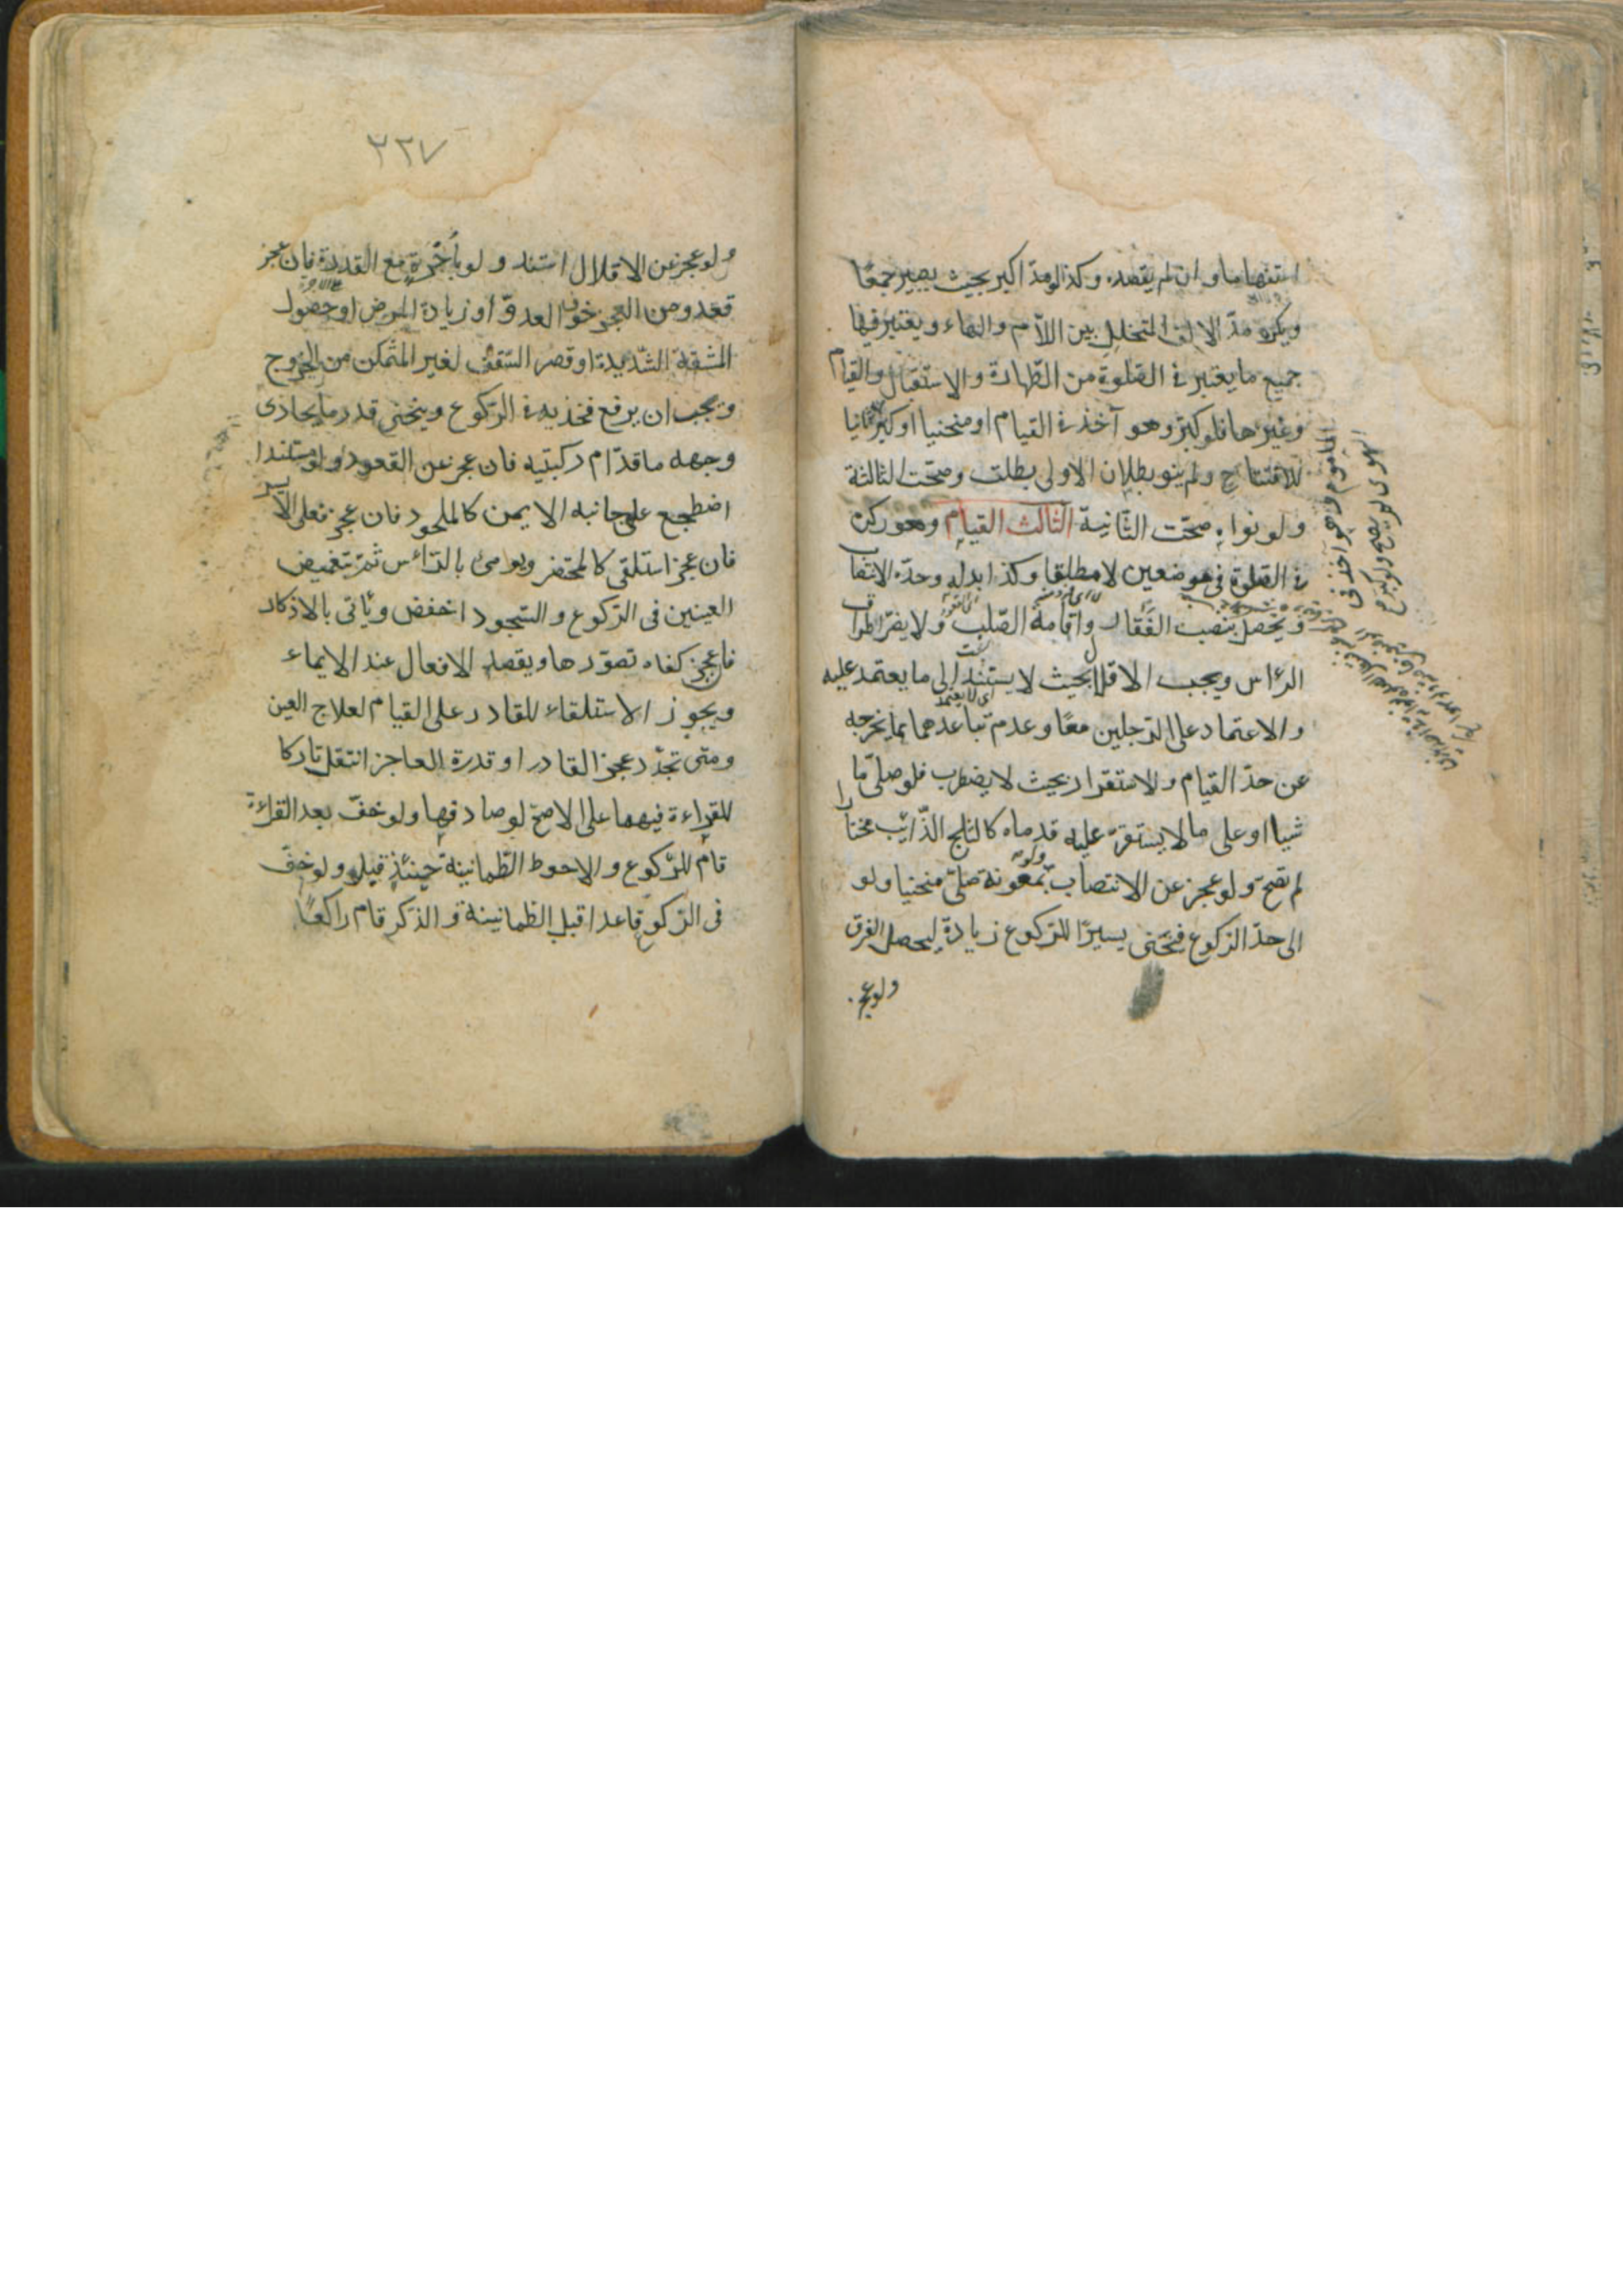 استفهاما وان لم يقصده وكذا لو مدّ اكبر بحيث يصير جمعًا
ويكره مدّ الالف المتخلل بين اللام والهاء ويعتبر فيها
جميع ما يعتبر فى الصّلوة من الطّهارة والاستقبال والقيام
وغيرها فلو كبّر وهو آخذ فى القيام او منحنيا او كبّر ثانيا
للافتتاح ولم ينو بطلان الاولى بطلت وصحّت الثالثة
ولو نواه صحّت الثّانية الثالث القيام وهو ركن
فى الصّلوة فى موضعين لا مطلقا وكذا بدله وحدّه الانتصاب
ويحصل بنصب الفَقار واقامة الصّلب ولا يضرّ اطراق
الرّاس ويجب الاقلال بحيث لا يستند الى ما يعتمد عليه
اى لا يعتمد
والاعتماد على الرّجلين معًا وعدم تباعدهما بما يخرجه
عن حدّ القيام والاستقرار بحيث لا يضطرب فلو صلّى ما
شيا او على ما لا يستقرّ عليه قدماه كالثلج الذّائب مختارا
لم تصحّ ولو عجز عن الانتصاب بمعونة صلّى منحنيا ولو
الى حدّ الركوع فينحنى يسيرًا للرّكوع زيادة ليحصل الفرق
ولو عجز
٢٢٧
ولو عجز عن الاقلال استند ولو باُجرة مع القدرة فان عجز
قعد ومن العجز خوف العدوّ او زيادة المرض او حصول
المشقة الشّديدة او قصر السّقف لغير المتمكن من الخروج
ويجب ان يرفع فخذيه فى الرّكوع وينحنى قدر ما يحاذى
وجهه ما قدّام ركبتيه فان عجز عن القعود ولو مستندا
اضطجع على جانبه الايمن كالملحود فان عجز فعلى الايسر
فان عجز استلقى كالمحتضر ويومئ بالرّاس ثمّ بتغميض
العينين فى الرّكوع والسّجود اخفض ويأتى بالاذكار
فان عجز كفاه تصوّرها ويقصد الافعال عند الايماء
ويجوز الاستلقاء للقادر على القيام لعلاج العين
ومتى تجدّد عجز القادر او قدرة العاجز انتقل تاركا
للقراءة فيهما على الاصحّ لو صادفها ولو خفّ بعد القراءة
قام للرّكوع والاحوط الطّمانينة حينئذٍ قبله ولو خفّ
فى الرّكوع قاعدا قبل الطّمانينة والذكر قام راكعًا